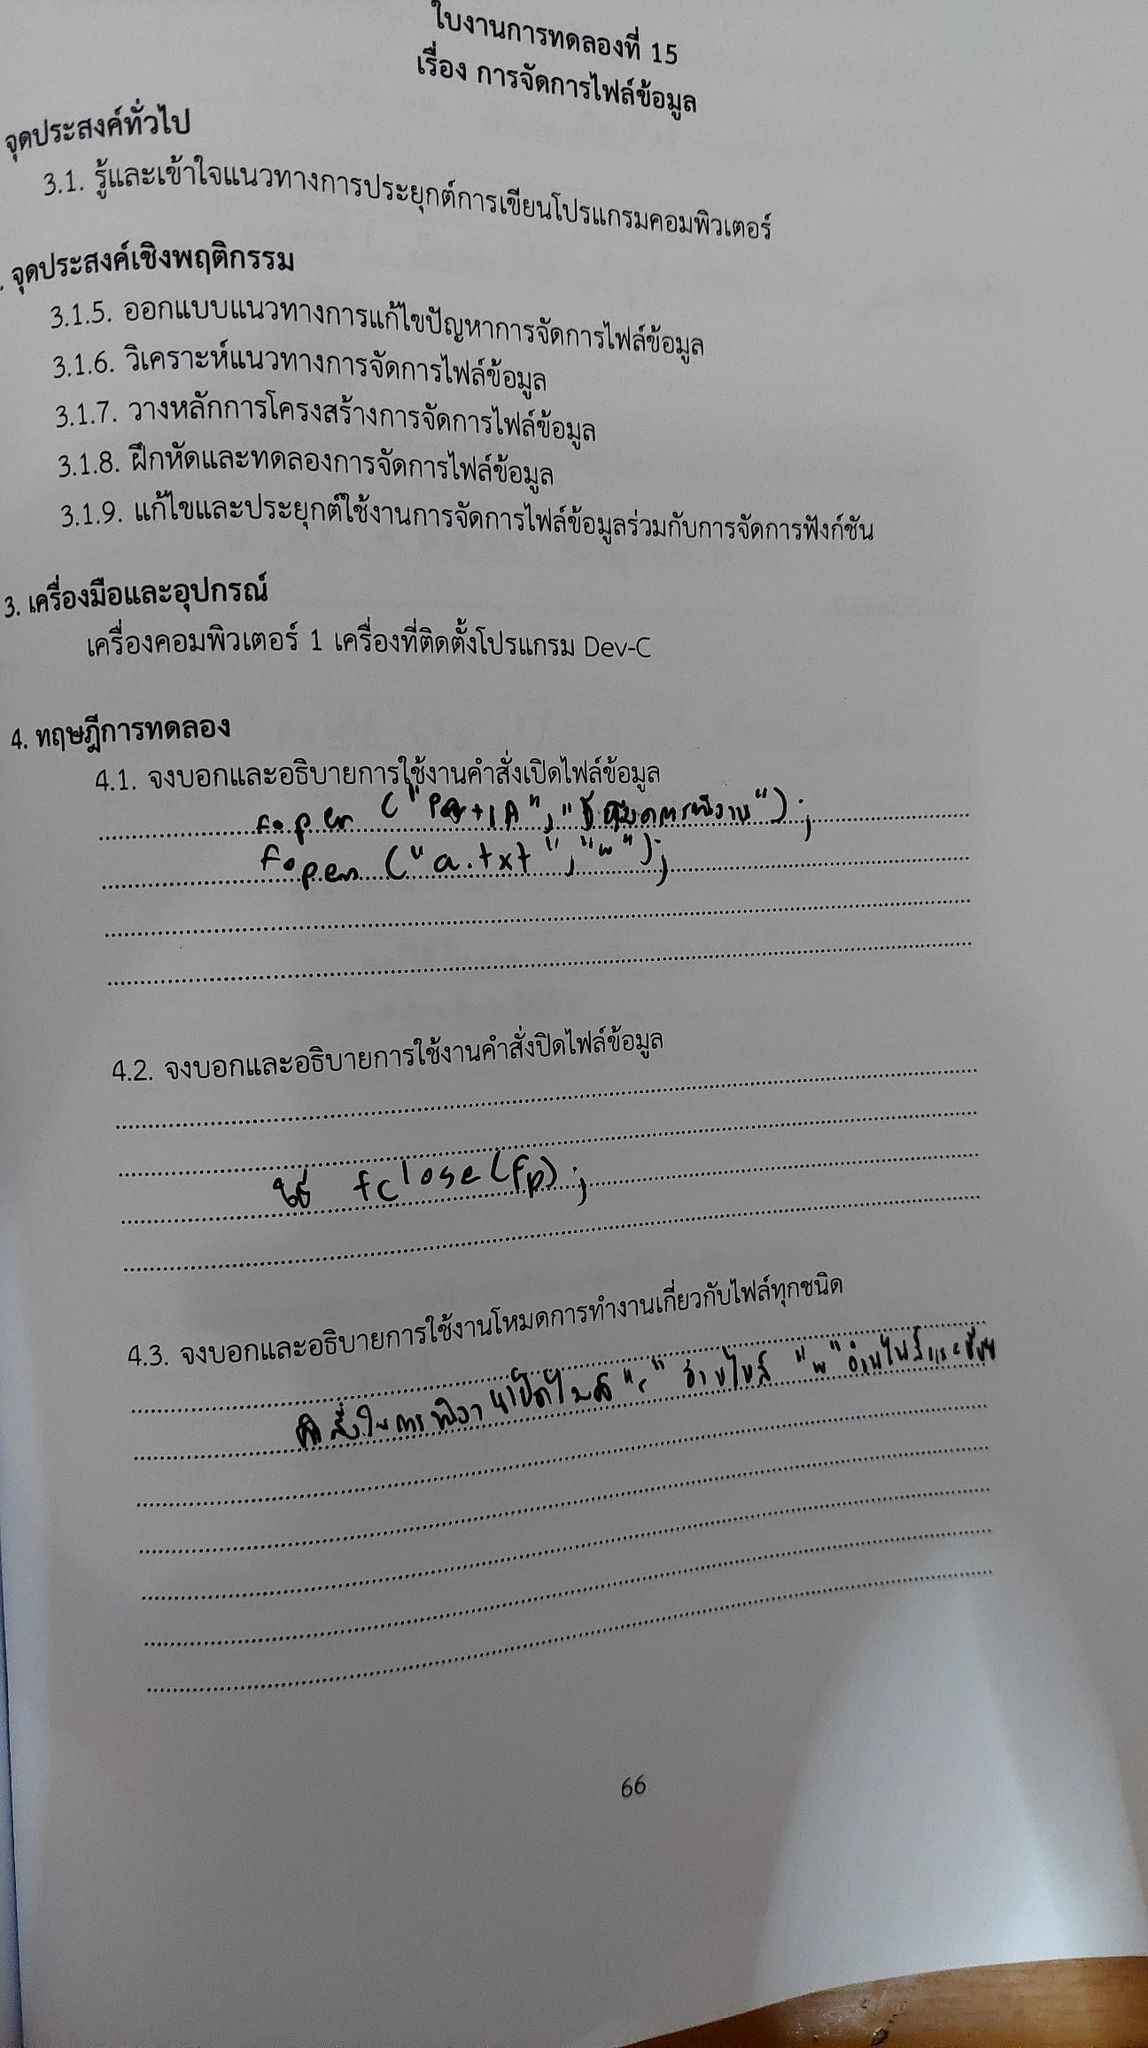 ใบงานการทดลองที่ 15
เรื่อง การจัดการไฟล์ข้อมูล
จุดประสงค์ทั่วไป
3.1. รู้และเข้าใจแนวทางการประยุกต์การเขียนโปรแกรมคอมพิวเตอร์
. จุดประสงค์เชิงพฤติกรรม
3.1.5. ออกแบบแนวทางการแก้ไขปัญหาการจัดการไฟล์ข้อมูล
3.1.6. วิเคราะห์แนวทางการจัดการไฟล์ข้อมูล
3.1.7. วางหลักการโครงสร้างการจัดการไฟล์ข้อมูล
3.1.8. ฝึกหัดและทดลองการจัดการไฟล์ข้อมูล
3.1.9. แก้ไขและประยุกต์ใช้งานการจัดการไฟล์ข้อมูลร่วมกับการจัดการฟังก์ชัน
3. เครื่องมือและอุปกรณ์
เครื่องคอมพิวเตอร์ 1 เครื่องที่ติดตั้งโปรแกรม Dev-C
4. ทฤษฎีการทดลอง
4.1. จงบอกและอธิบายการใช้งานคำสั่งเปิดไฟล์ข้อมูล
fopen ("
fopen ("a.txt","w");
4.2. จงบอกและอธิบายการใช้งานคำสั่งปิดไฟล์ข้อมูล
ใช้ fclose(fp);
4.3. จงบอกและอธิบายการใช้งานโหมดการทำงานเกี่ยวกับไฟล์ทุกชนิด
"r" อ่านไฟล์ "w"
66